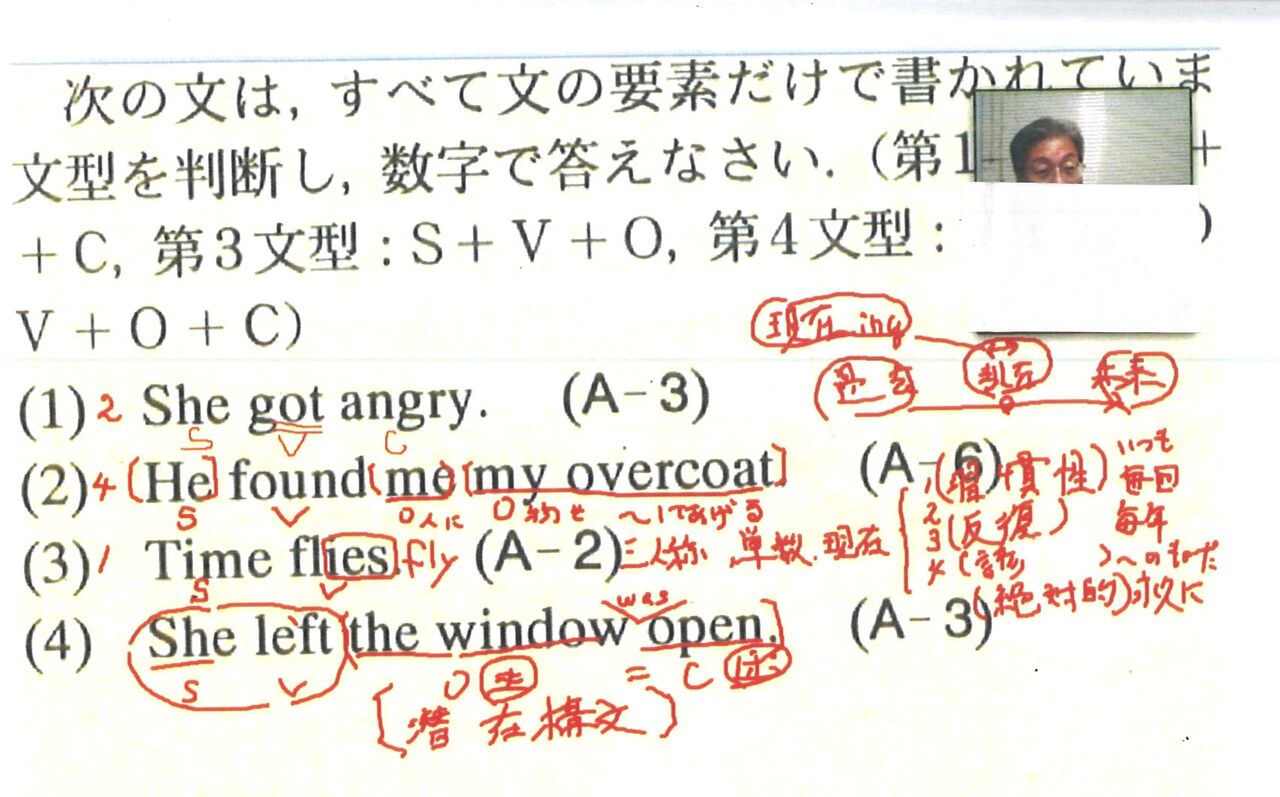 次の文は，すべて文の要素だけで書かれていま
文型を判断し，数字で答えなさい．（第1 +
+ C, 第3文型：S + V + O, 第4文型： )
V + O + C）
現在 ing
過去 現在 未来
(1) 2 She got angry. (A-3)
S V C
(2) 4 [He] found (me) [my overcoat] (A-6)
S V O 人に O 物を 〜してあげる
(習慣性) いつも
2 (反復) 毎回
毎年
(3) 1 Time flies. fly (A-2) 三人称 単数.現在
3
4 ( )〜のものだ
S V
(絶対的)永久に
was
(4) She left (the window open.] (A-3)
S V O = C
[潜在構文]